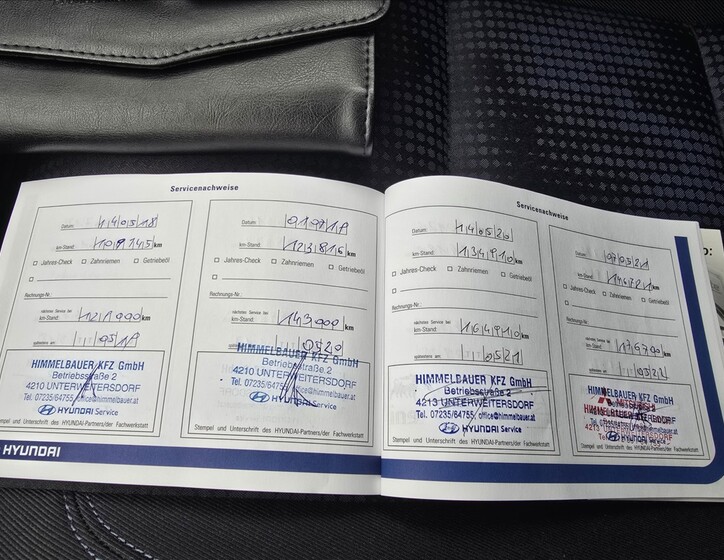 Servicenachweise
Datum: 14 05 18
km-Stand: 109145 km
Jahres-Check Zahnriemen Getriebeöl
Rechnungs-Nr.:
nächstes Service bei
km-Stand: 121000 km
spätestens am: 05 19
HIMMELBAUER KFZ GmbH
Betriebsstraße 2
4210 UNTERWEITERSDORF
Tel. 07235/64755, office@himmelbauer.at
HYUNDAI Service
Stempel und Unterschrift des HYUNDAI-Partners/der Fachwerkstatt
Datum:
km-Stand: 123816 km
Jahres-Check Zahnriemen Getriebeöl
Rechnungs-Nr.:
nächstes Service bei
km-Stand: 143000 km
spätestens am: 05 20
HIMMELBAUER KFZ GmbH
Betriebsstraße 2
4210 UNTERWEITERSDORF
Tel. 07235/64755, office@himmelbauer.at
HYUNDAI Service
Stempel und Unterschrift des HYUNDAI-Partners/der Fachwerkstatt
HYUNDAI
Servicenachweise
Datum: 14 05 20
km-Stand: 134910 km
Jahres-Check Zahnriemen Getriebeöl
Rechnungs-Nr.:
nächstes Service bei
km-Stand: 164910 km
spätestens am: 05 21
HIMMELBAUER KFZ GmbH
Betriebsstraße 2
4213 UNTERWEITERSDORF
Tel. 07235/64755, office@himmelbauer.at
HYUNDAI Service
Stempel und Unterschrift des HYUNDAI-Partners/der Fachwerkstatt
Datum: 07 05 21
km-Stand: 146721 km
Jahres-Check Zahnriemen Getriebeöl
Rechnungs-Nr.:
nächstes Service bei
km-Stand: km
spätestens am: 05 22
4213
HYUNDAI Service
Stempel und Unterschrift des HYUNDAI-Partners/der Fachwerkstatt